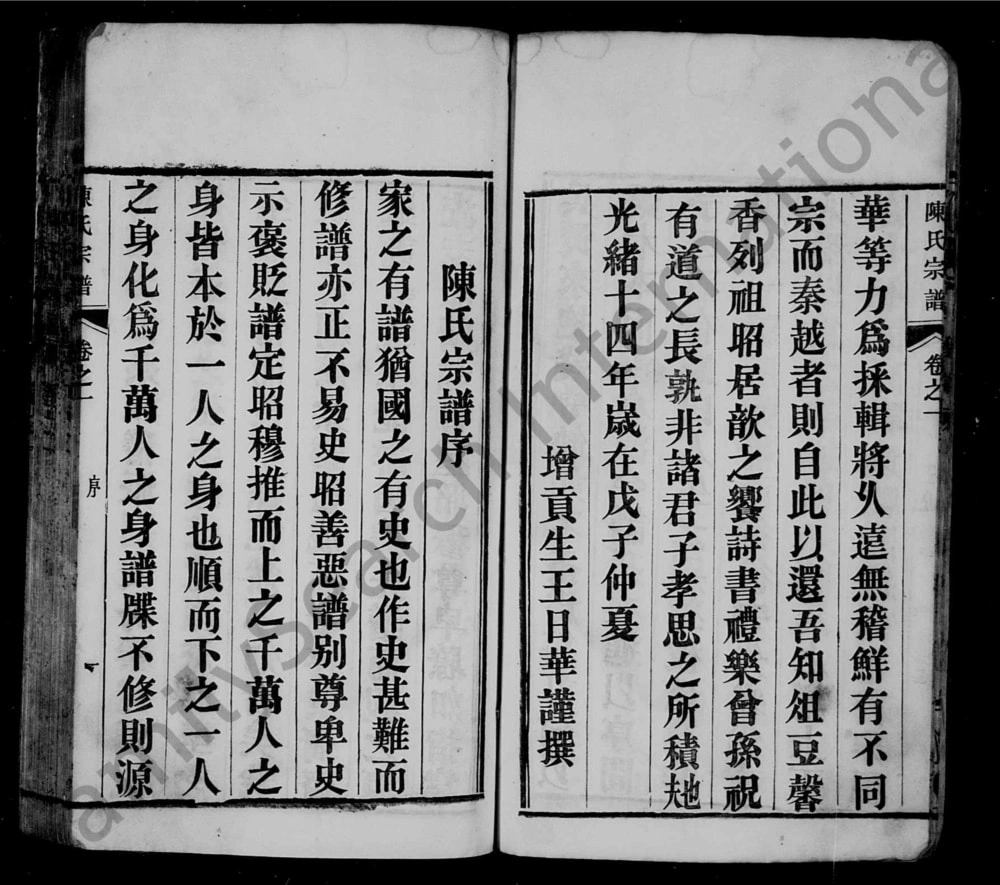 陳氏宗譜
卷之一
華等力爲採輯將乆遠無稽鮮有不同
宗而秦越者則自此以還吾知俎豆馨
香列祖昭居歆之饗詩書禮樂曾孫祝
有道之長孰非諸君子孝思之所積𠀍
光緒十四年嵗在戊子仲夏
增貢生王日華謹撰
陳氏宗譜序
家之有譜猶國之有史也作史甚難而
修譜亦正不易史昭善惡譜别尊卑史
示褒貶譜定昭穆推而上之千萬人之
身皆本於一人之身也順而下之一人
之身化爲千萬人之身譜牒不修則源
陳氏宗譜
卷之一
序
一
FamilySearch International